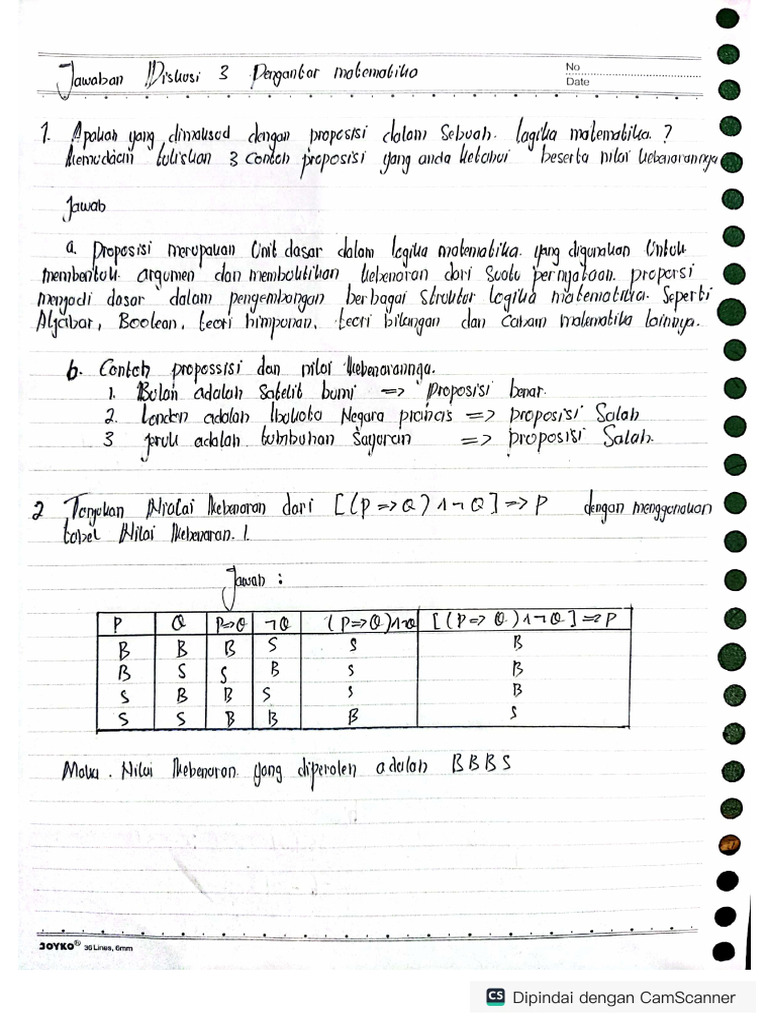 Jawaban Diskusi 3 Pengantar matematika
No
Date
1. Apakah yang dimaksud dengan proposisi dalam Sebuah logika matematika. ?
kemudian tuliskan 3 contoh proposisi yang anda ketahui beserta nilai kebenarannya
Jawab
a. Proposisi merupakan Unit dasar dalam logika matematika. yang digunakan Untuk
membentuk argumen dan membuktikan kebenaran dari Suatu pernyataan. proporsi
menjadi dasar dalam pengembangan berbagai Struktur logika matematika. Seperti
Aljabar, Boolean, teori himpunan, teori bilangan dan Cabam matematika lainnya.
b. Contoh propossisi dan nilai kebenarannya.
1. Bulan adalah Satelit bumi => Proposisi benar.
2. London adalah Ibukota Negara prancis => proposisi Salah
3 jeruk adalah tumbuhan Sayuran => proposisi Salah.
2 Tentukan Nilai kebenaran dari [(P => Q) ∧ ¬ Q] => P dengan menggunakan
tabel Nilai kebenaran.
Jawab :
P Q P=>Q ¬Q (P=>Q)∧¬Q [(P=> Q)∧¬Q]=>P
B B B S S B
B S S B S B
S B B S S B
S S B B B S
Maka. Nilai kebenaran yang diperoleh adalah B B B S
JOYKO® 36 Lines, 6mm
CS Dipindai dengan CamScanner